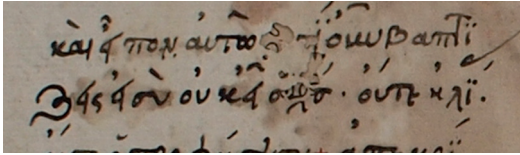 κὰι εἶπον αὐτῶ τί οὖν βαπτί
ζεις εἰ σὺ οὐκ εἶ ὁ χς · οὔτε ηλί.